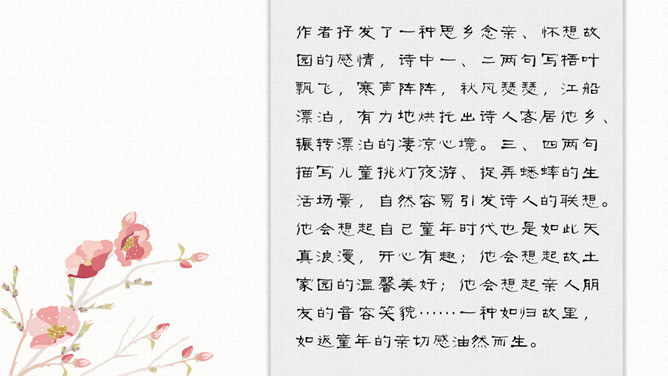 作者抒发了一种思乡念亲、怀想故
园的感情，诗中一、二两句写梧叶
飘飞，寒声阵阵，秋风瑟瑟，江船
漂泊，有力地烘托出诗人客居他乡、
辗转漂泊的凄凉心境。三、四两句
描写儿童挑灯夜游、捉弄蟋蟀的生
活场景，自然容易引发诗人的联想。
他会想起自己童年时代也是如此天
真浪漫，开心有趣；他会想起故土
家园的温馨美好；他会想起亲人朋
友的音容笑貌……一种如归故里，
如返童年的亲切感油然而生。